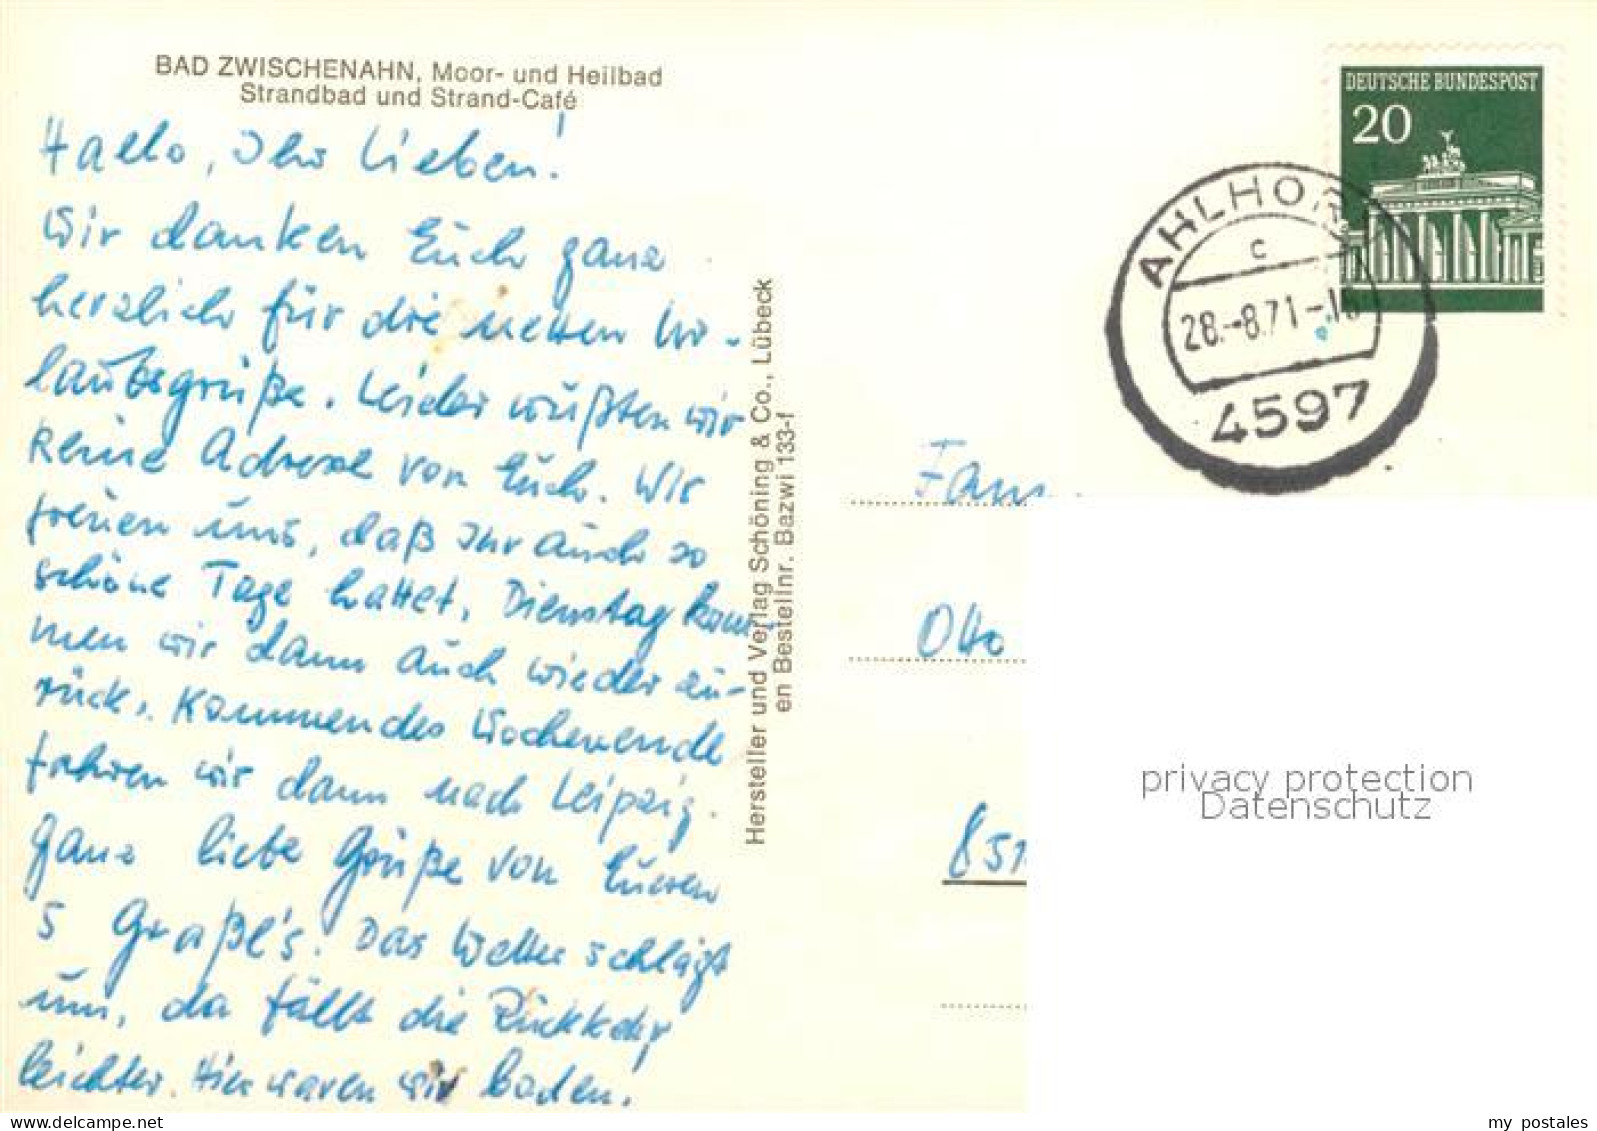 BAD ZWISCHENAHN, Moor- und Heilbad
Strandbad und Strand-Café
Hallo, Ihr Lieben!
Wir danken Euch ganz
herzlich für die netten Ur-
laubsgrüße. Leider wußten wir
keine Adresse von Euch. Wir
freuen uns, daß Ihr auch so
schöne Tage hattet. Dienstag kom-
men wir dann auch wieder zu-
rück. Kommendes Wochenende
fahren wir dann nach Leipzig.
Ganz liebe Grüße von Eueren
5 Graßl's. Das Wetter schlägt
um, da fällt die Rückkehr
leichter. Hier waren wir baden.
Hersteller und Verlag Schöning & Co., Lübeck
en Bestellnr. Bazwi 133-f
DEUTSCHE BUNDESPOST
20
AHLHOR
c
28.-8.71-.16
4597
Fam
Otto
851
privacy protection
Datenschutz
delcampe.net
my_postales